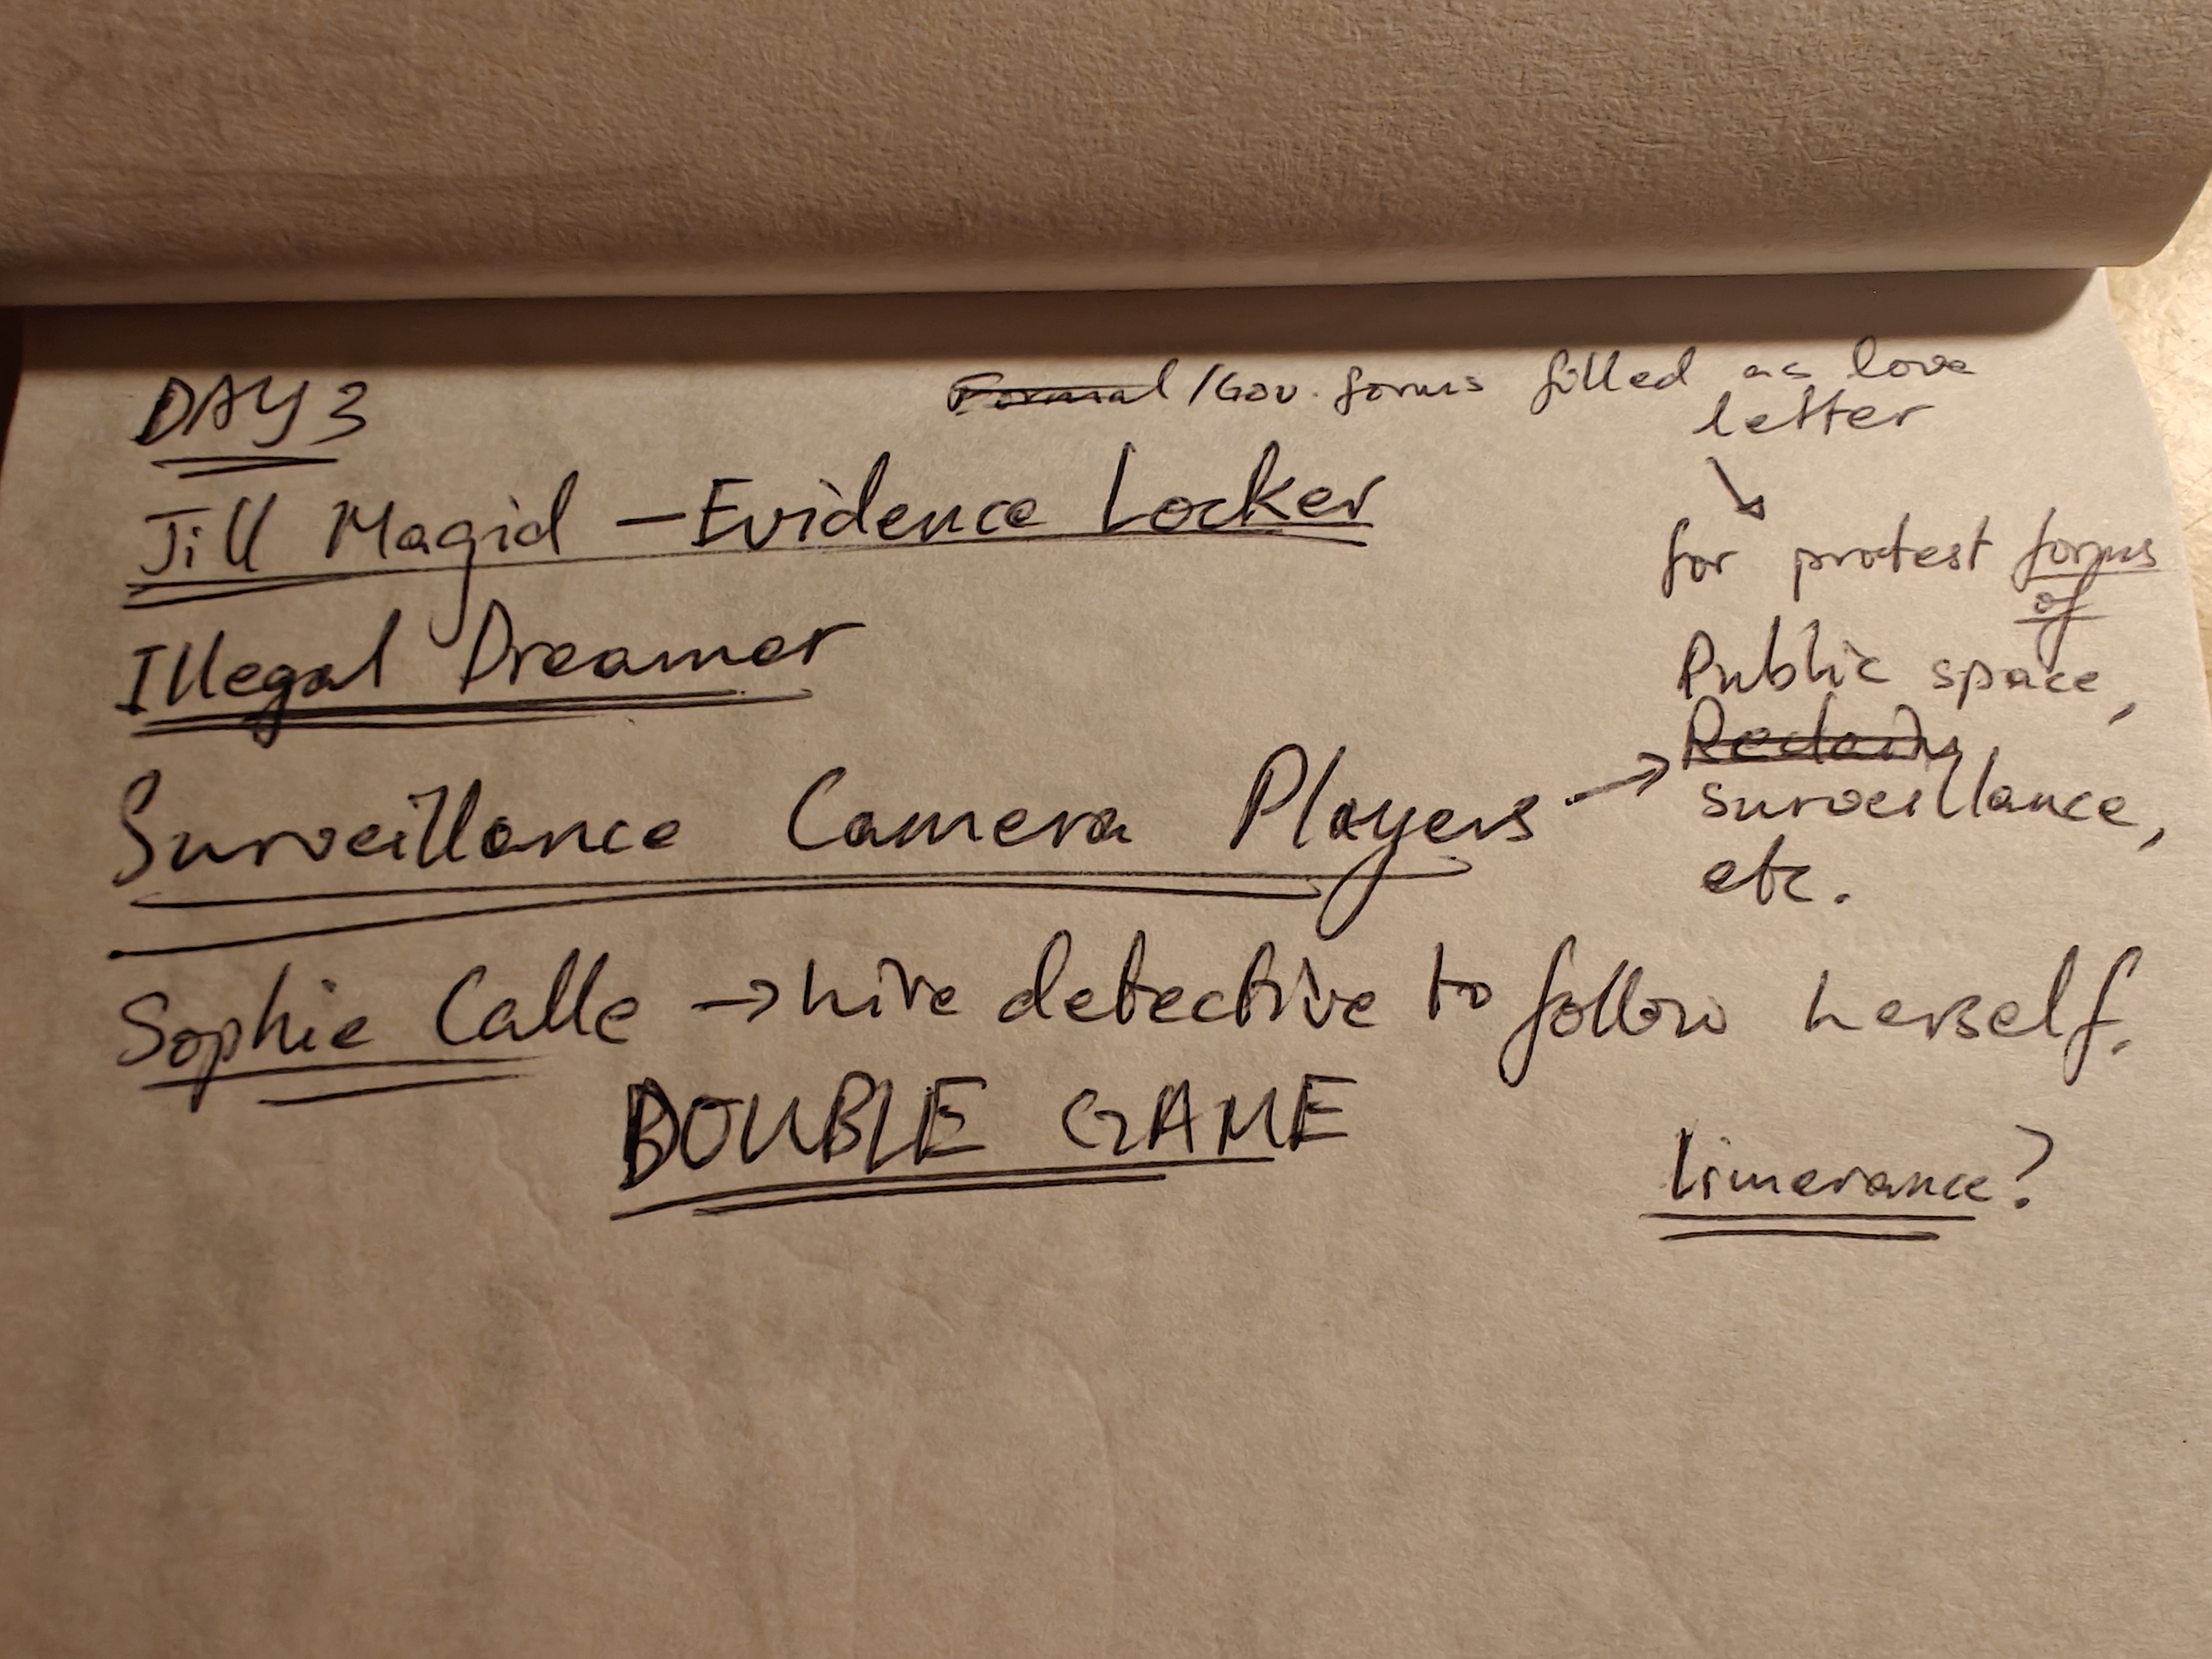 DAY 3
Formal / Gov. forms filled as love
letter
Jill Magid – Evidence Locker
↘
for protest forms
of
Illegal Dreamer
Public space,
Surveillance Camera Players →
surveillance,
etc.
Sophie Calle → hire detective to follow herself.
DOUBLE GAME
limerance?